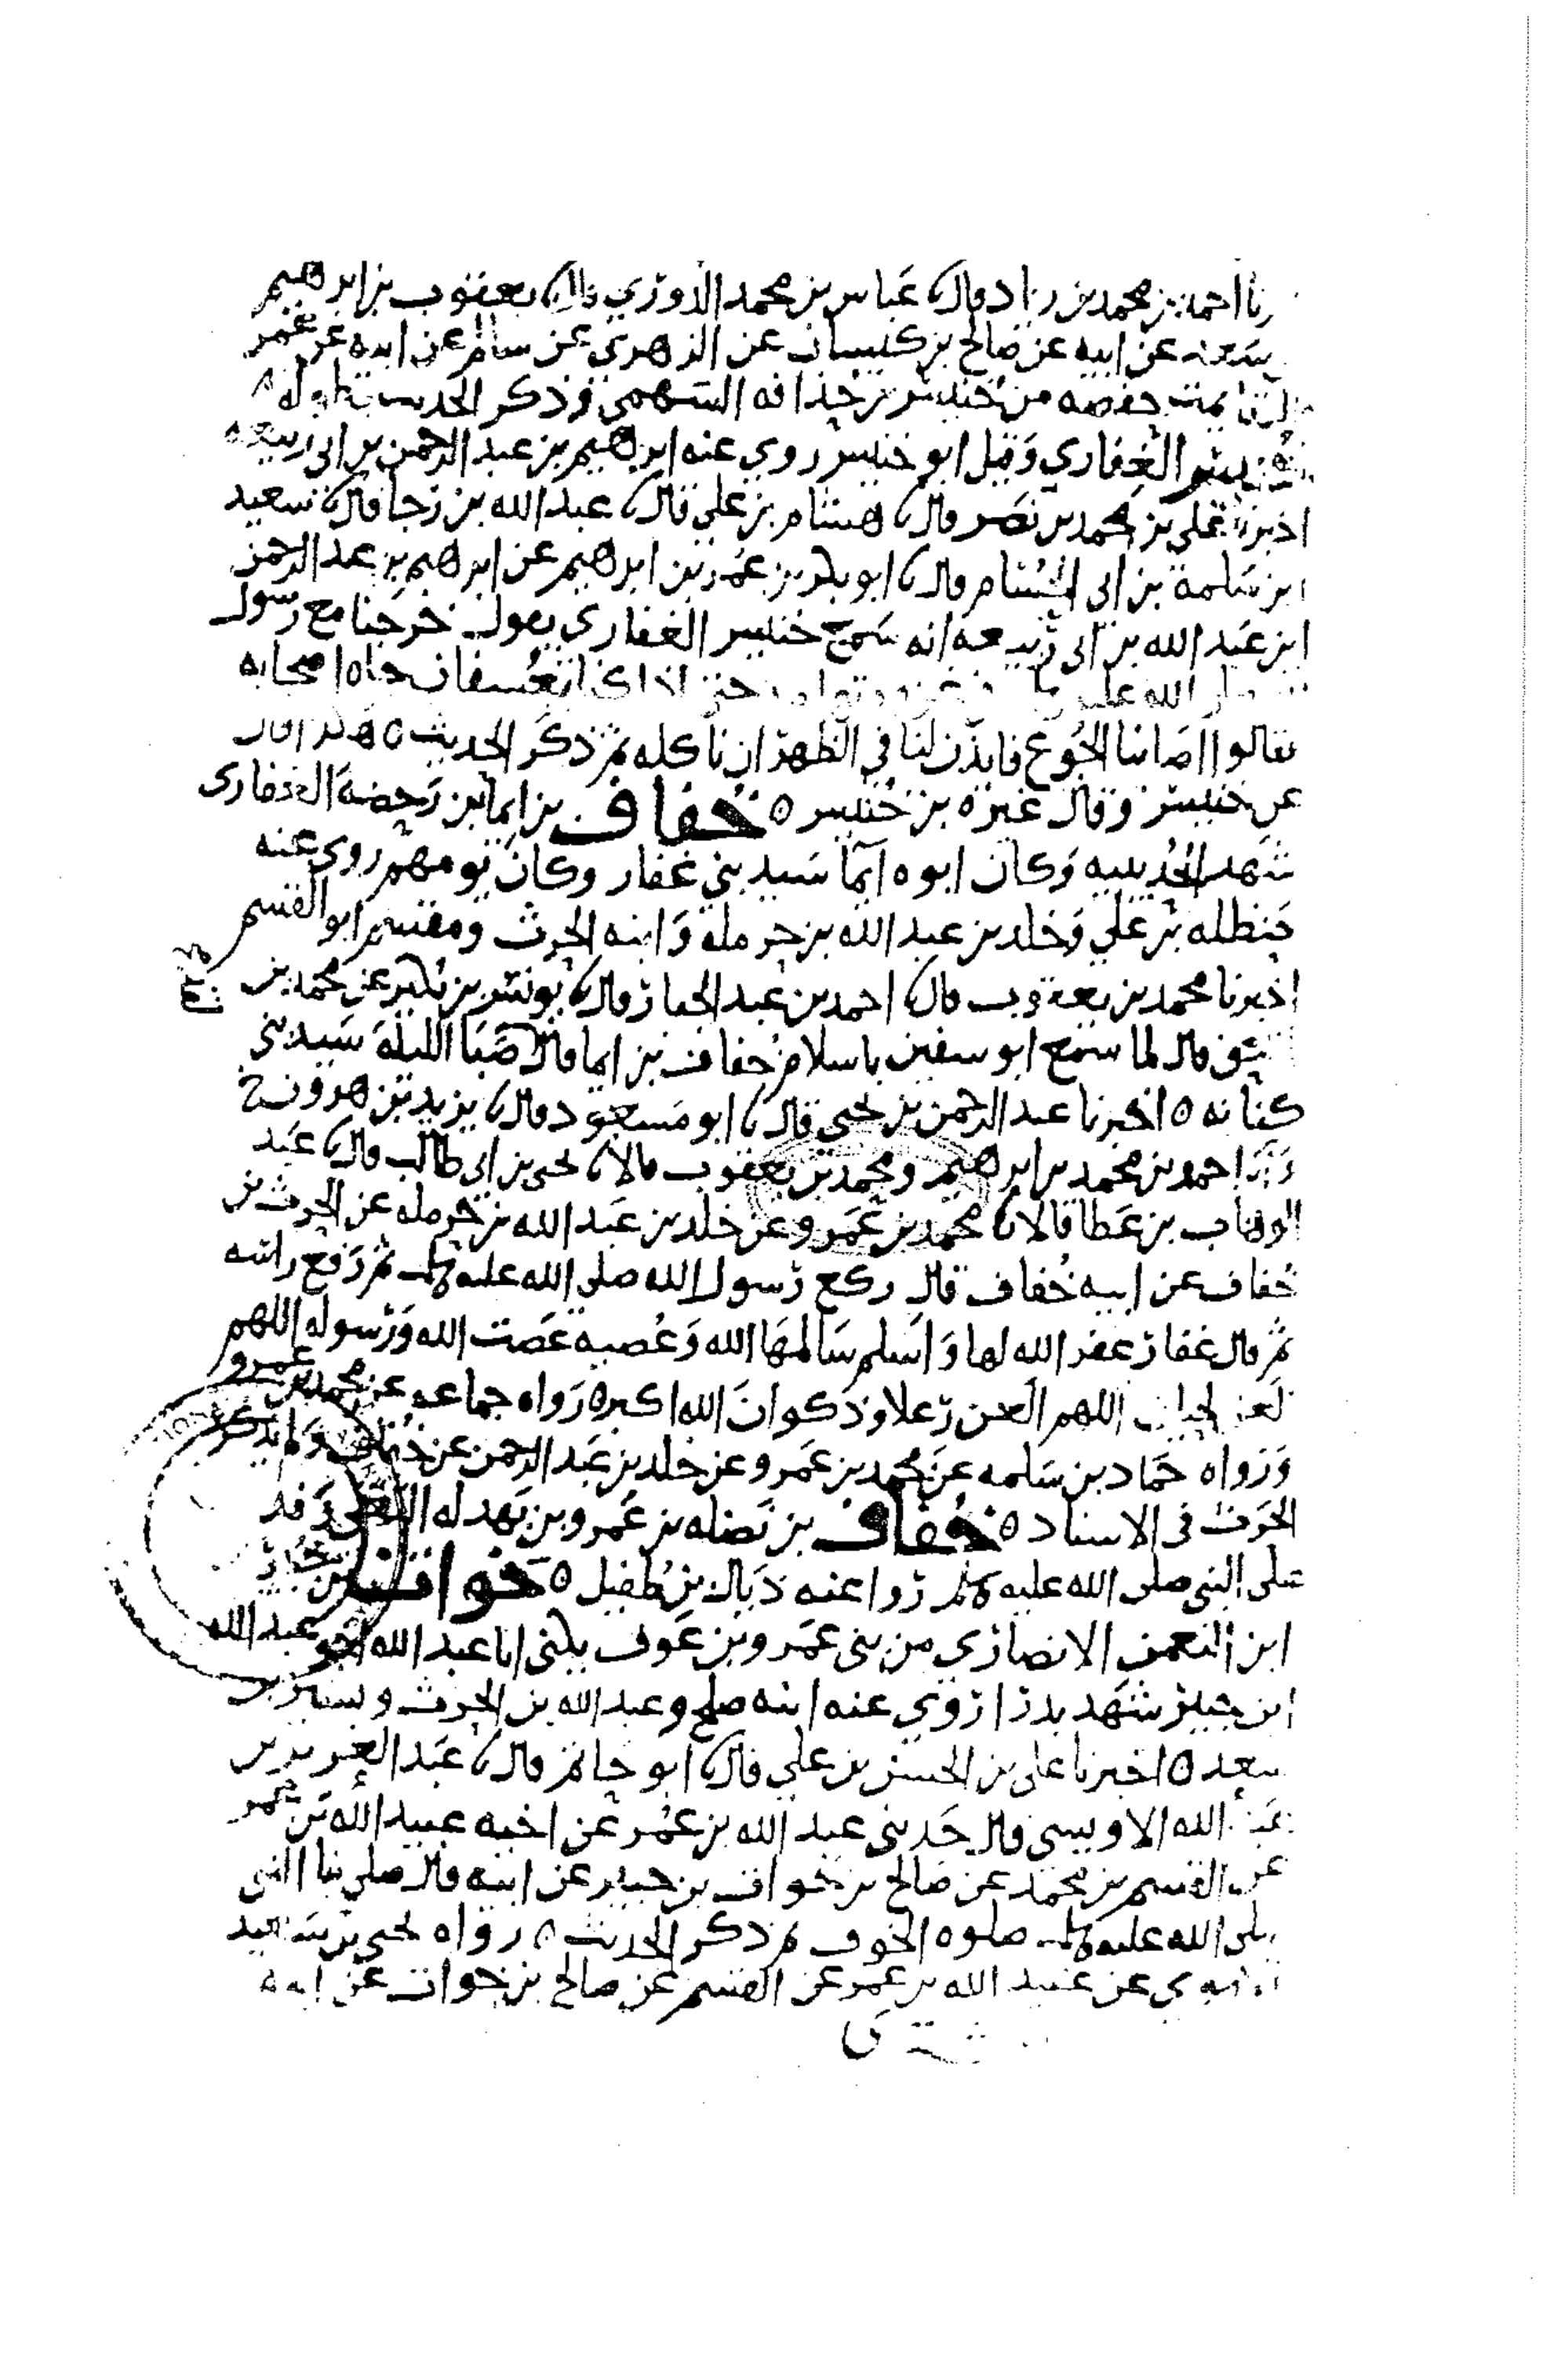 احمد بن محمد بن زياد قال عباس بن محمد الدوري قال يعقوب بن ابرهيم
سعد عن ابيه عن صالح بن كيسان عن الزهري عن سالم عن ابيه عن عمر
تايمت حفصه من خنيس بن حذافه السهمي وذكر الحديث بطوله ه
خنيس الغفاري وقيل ابو خنيس روي عنه ابرهيم بن عبد الرحمن بن ابي ربيعه
اخبرنا علي بن محمد بن نصر قال هشام بن علي قال عبد الله بن رجا قال سعيد
ابن سلمة بن ابي الحسام قال ابو بكر بن عمر بن ابرهيم عن ابرهيم بن عبد الرحمن
ابن عبد الله بن ابي ربيعه انه سمع خنيس الغفاري يقول خرجنا مع رسول
الله صلى الله عليه حتى اذا كنا بعسفان جاه اصحابه
فقالوا اصابنا الجوع فايذن لنا في الظهر ان ناكله ثم ذكر الحديث ه هكذا قال
عن خنيس وقال غيره بن خنيس ه خفاف بن ايما بن رحضة الغفاري
شهد الحديبيه وكان ابوه ايما سيد بني غفار وكان يومهم روي عنه
حنظله بن علي وخلد بن عبد الله بن حرمله وابنه الحرث ومقسم ابو القسم
اخبرنا محمد بن يعقوب قال احمد بن عبد الجبار قال يونس بن بكير عن محمد بن
اسحق قال لما سمع ابو سفين باسلام خفاف بن ايما قال صبا الليلة سيد بني
كنانه ه اخبرنا عبد الرحمن بن يحيى قال ابو مسعود قال يزيد بن هرون ح
احمد بن محمد بن ابرهيم ومحمد بن يعقوب قالا يحيى بن ابي طالب قال عبد
الوهاب بن عطا قالا محمد بن عمرو عن خلد بن عبد الله بن حرمله عن الحرث بن
خفاف عن ابيه خفاف قال ركع رسول الله صلى الله عليه وسلم ثم رفع راسه
ثم قال غفار غفر الله لها واسلم سالمها الله وعصيه عصت الله ورسوله اللهم
العن لحيان اللهم العن رعلا وذكوان الله اكبر ه رواه جماعه عن محمد بن عمرو
ورواه حماد بن سلمه عن محمد بن عمرو عن خلد بن عبد الرحمن عن خفاف ولم يذكر
الحرث في الاسناد ه خفاف بن نضله بن عمرو بن بهدله الثقفي وفد
على النبي صلى الله عليه وسلم روا عنه ذيال بن طفيل ه خوات بن جبير
ابن النعمن الانصاري من بني عمرو بن عوف يكنى ابا عبد الله اخو عبد الله
ابن جبير شهد بدرا روي عنه ابنه صلح وعبد الله بن الحرث وبسر بن
سعد ه اخبرنا علي بن الحسن بن علي قال ابو حاتم قال عبد العزيز بن
عبد الله الاويسي قال حدثني عبد الله بن عمر عن اخيه عبيد الله بن عمر
عن القسم بن محمد عن صالح بن خوات بن جبير عن ابيه قال صلى بنا النبي
صلى الله عليه وسلم صلوه الخوف ثم ذكر الحديث ه رواه يحيى بن سعيد
الاموي عن عبيد الله بن عمر عن القسم عن صالح بن خوات عن ابيه